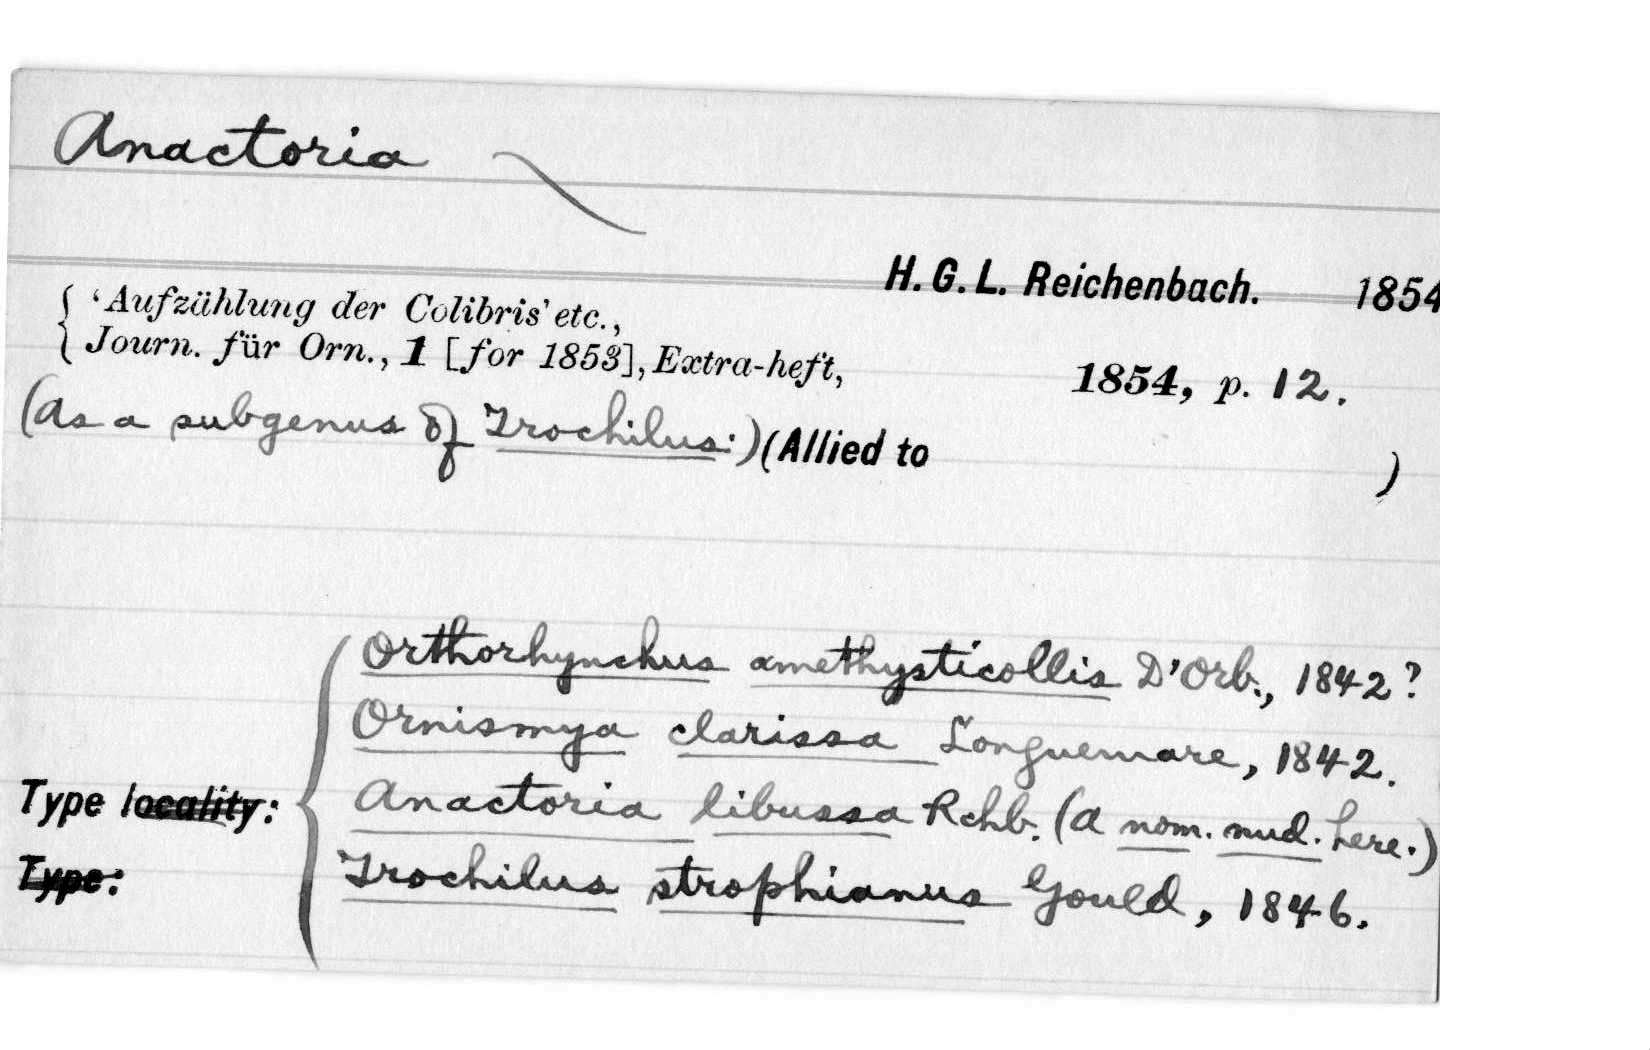 Anactoria
H. G. L. Reichenbach. 1854
'Aufzählung der Colibris' etc.,
Journ. für Orn., 1 [for 1853], Extra-heft, 1854, p. 12.
(As a subgenus of Trochilus.) (Allied to )
Orthorhynchus amethysticollis D'Orb., 1842?
Ornismya clarissa Longuemare, 1842.
Type locality: Anactoria libussa Rchb. (a nom. nud. here.)
Type: Trochilus strophianus Gould, 1846.